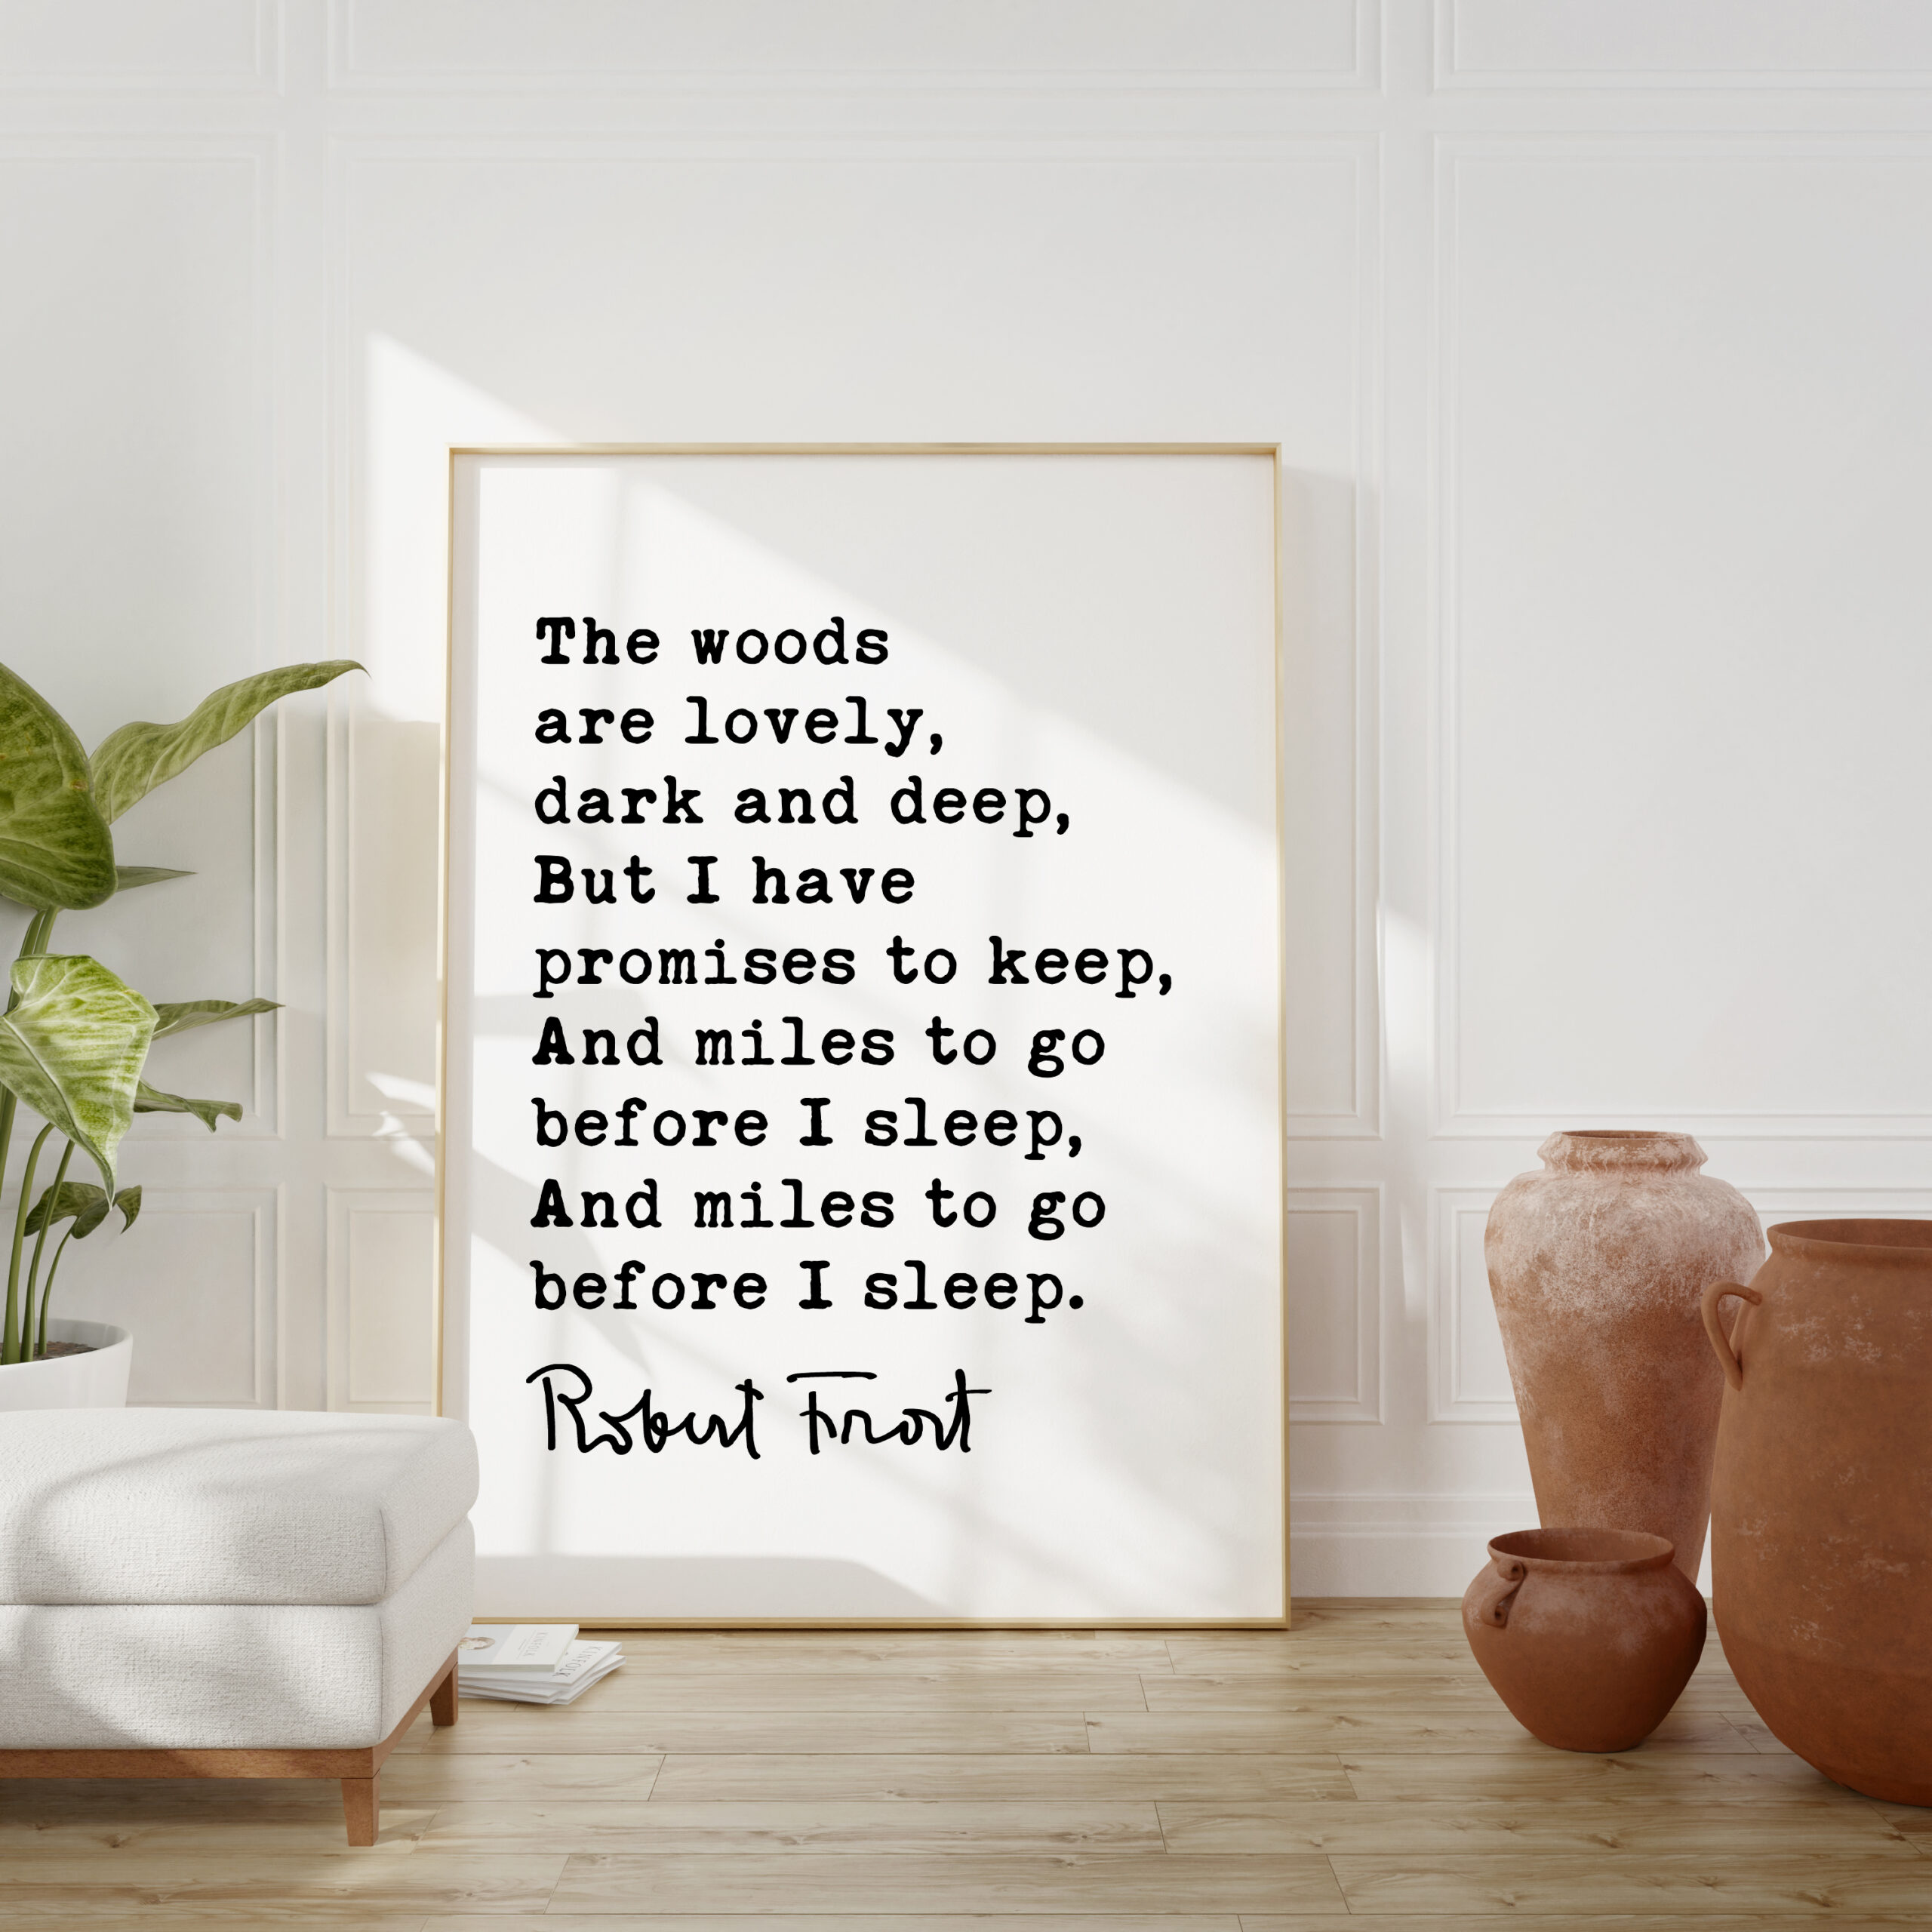 The woods
are lovely,
dark and deep,
But I have
promises to keep,
And miles to go
before I sleep,
And miles to go
before I sleep.
Robert Frost